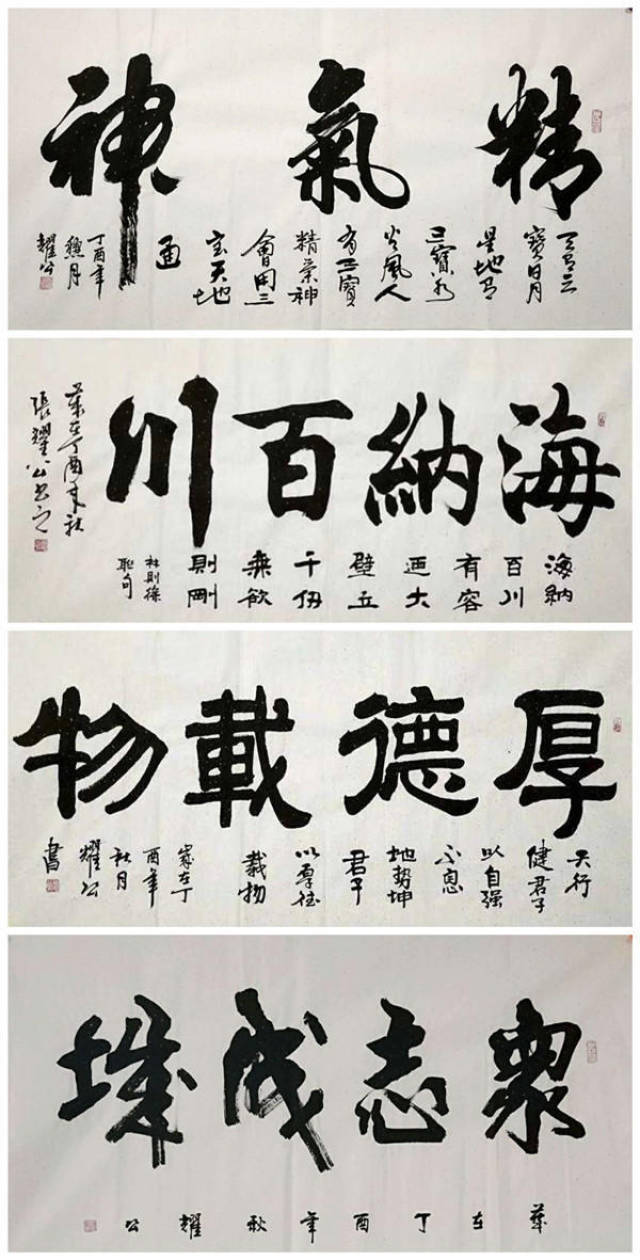 精氣神
天有三
寶日月
星地有
三寶水
火風人
有三寶
精氣神
會用三
宝天地
通
丁酉年
穐月
耀公
海納百川
海納
百川
有容
迺大
壁立
千仞
無欲
則剛
林則徐
聯句
歲在丁酉年秋
張耀公書之
厚德載物
天行
健君子
以自强
不息
地勢坤
君子
以厚德
載物
歲在丁
酉年
秋月
耀公
書
眾志成城
歲在丁酉年秋耀公